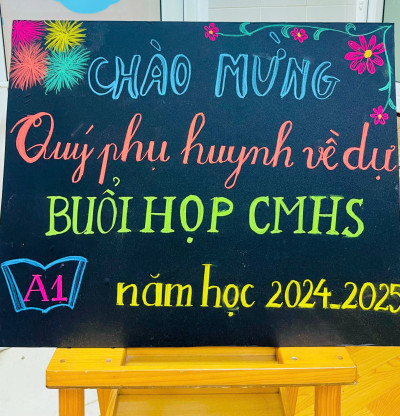 CHÀO MỪNG
Quý phụ huynh về dự
BUỔI HỌP CMHS
A1
năm học 2024_2025